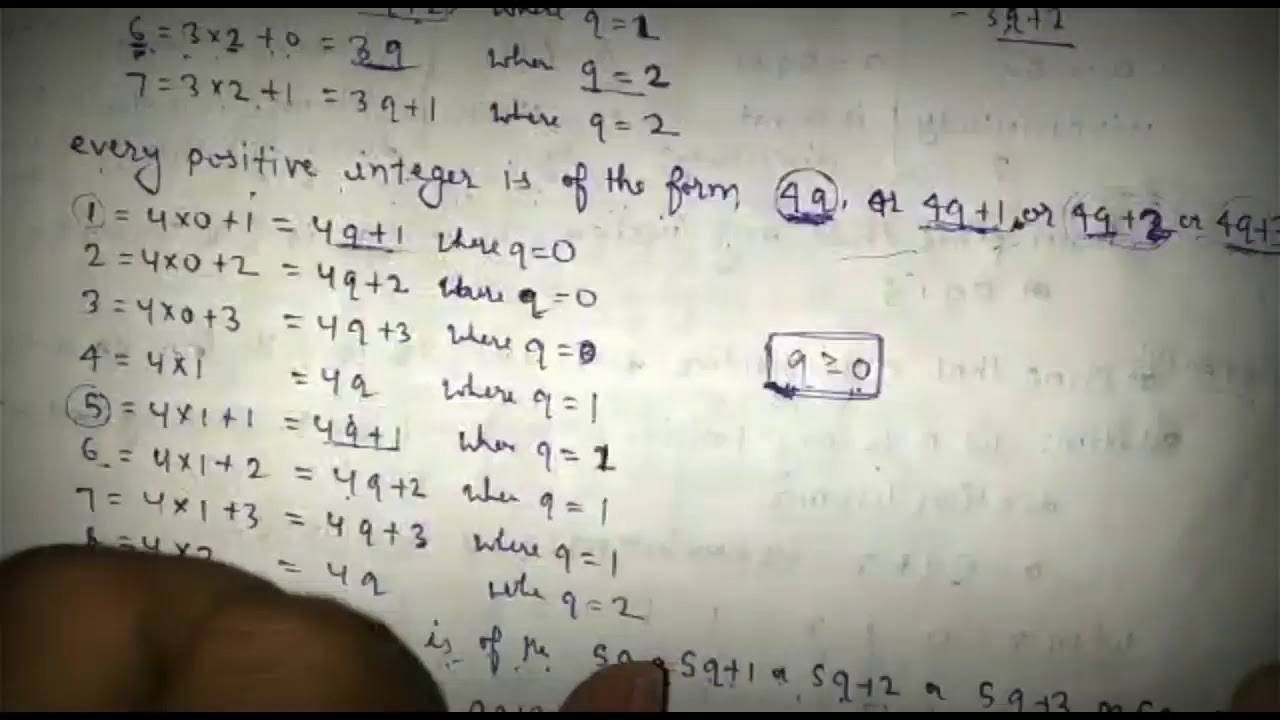 where q=1
- 3q+2
6 = 3×2+0 = 3q when q = 2
7 = 3×2+1 = 3q+1 where q=2
every positive integer is of the form 4q, or 4q+1, or 4q+2 or 4q+3
1 = 4×0+1 = 4q+1 where q=0
2 = 4×0+2 = 4q+2 where q=0
3 = 4×0+3 = 4q+3 where q=0
4 = 4×1 = 4q where q=1
q ≥ 0
5 = 4×1+1 = 4q+1 when q=1
6 = 4×1+2 = 4q+2 when q=1
7 = 4×1+3 = 4q+3 where q=1
8 = 4×2 = 4q where q=2
is of the 5q 5q+1 or 5q+2 or 5q+3 or